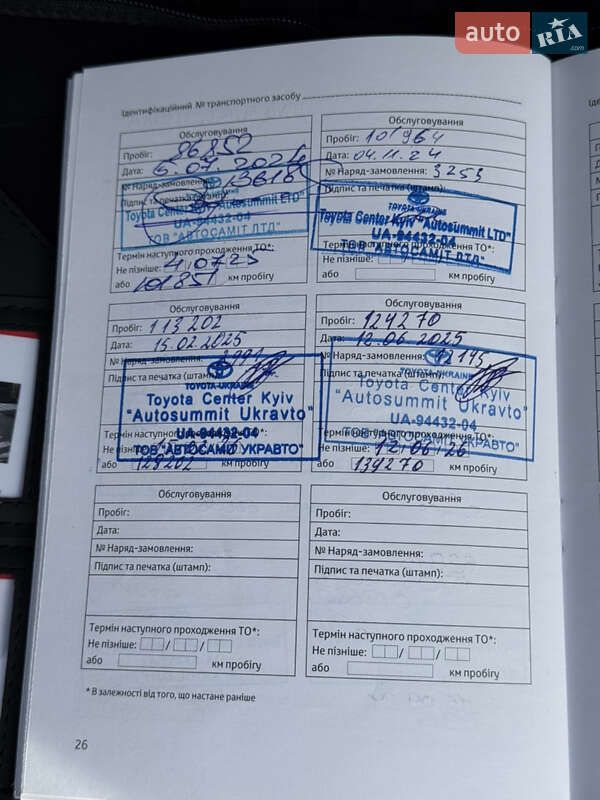 auto RIA .com
Ідентифікаційний № транспортного засобу
Обслуговування
Пробіг: 86852
Дата: 5.07.2024
№ Наряд-замовлення: 13618
Підпис та печатка (штамп):
Toyota Center Kyiv "Autosummit LTD"
UA-94432-04
ТОВ "АВТОСАМІТ ЛТД"
Термін наступного проходження ТО*:
Не пізніше: 4 07 25
або 101851 км пробігу
Обслуговування
Пробіг: 101964
Дата: 04.11.24
№ Наряд-замовлення: 3253
Підпис та печатка (штамп):
TOYOTA-UKRAINE
Toyota Center Kyiv "Autosummit LTD"
UA-94432-04
ТОВ "АВТОСАМІТ ЛТД"
Термін наступного проходження ТО*:
Не пізніше:
або км пробігу
Обслуговування
Пробіг: 113202
Дата: 15.02.2025
№ Наряд-замовлення:
Підпис та печатка (штамп):
TOYOTA-UKRAINE
Toyota Center Kyiv
"Autosummit Ukravto"
UA-94432-04
ТОВ "АВТОСАМІТ УКРАВТО"
Термін наступного
Не пізніше:
або 128202 км пробігу
Обслуговування
Пробіг: 124270
Дата: 12.06.2025
№ Наряд-замовлення: 12145
Підпис та печатка (штамп):
TOYOTA-UKRAINE
Toyota Center Kyiv
"Autosummit Ukravto"
UA-94432-04
Термін наступного проходження ТО*:
ТОВ УКРАВТО"
Не пізніше: 12 06 26
або 139270 км пробігу
Обслуговування
Пробіг:
Дата:
№ Наряд-замовлення:
Підпис та печатка (штамп):
Термін наступного проходження ТО*:
Не пізніше: / /
або км пробігу
Обслуговування
Пробіг:
Дата:
№ Наряд-замовлення:
Підпис та печатка (штамп):
Термін наступного проходження ТО*:
Не пізніше: / /
або км пробігу
* В залежності від того, що настане раніше
26